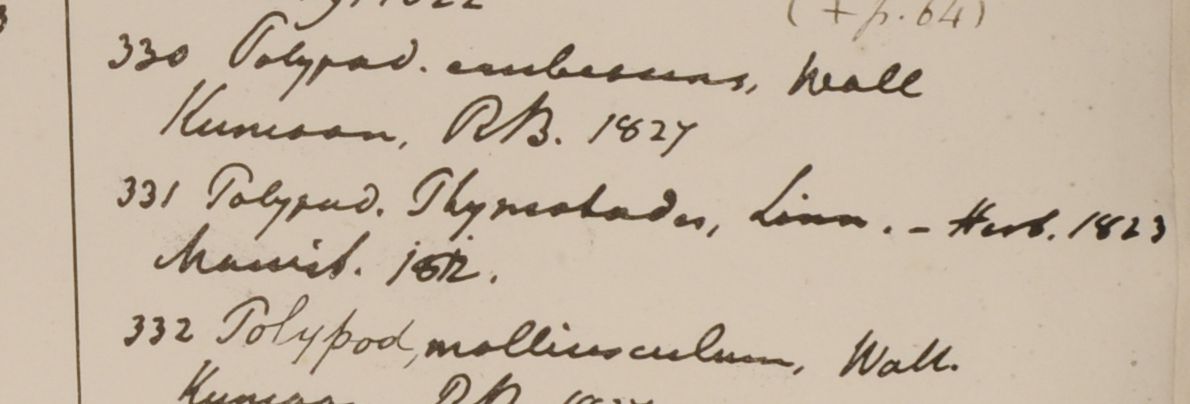 1822
(+ p. 64)
330 Polypod. erubescens, Wall
Kumaon, RB. 1827
331 Polypod. Phymatodes, Linn. - Herb. 1823
Maurit. 1812.
332 Polypod, molliusculum, Wall.
Kumaon RB. 1827